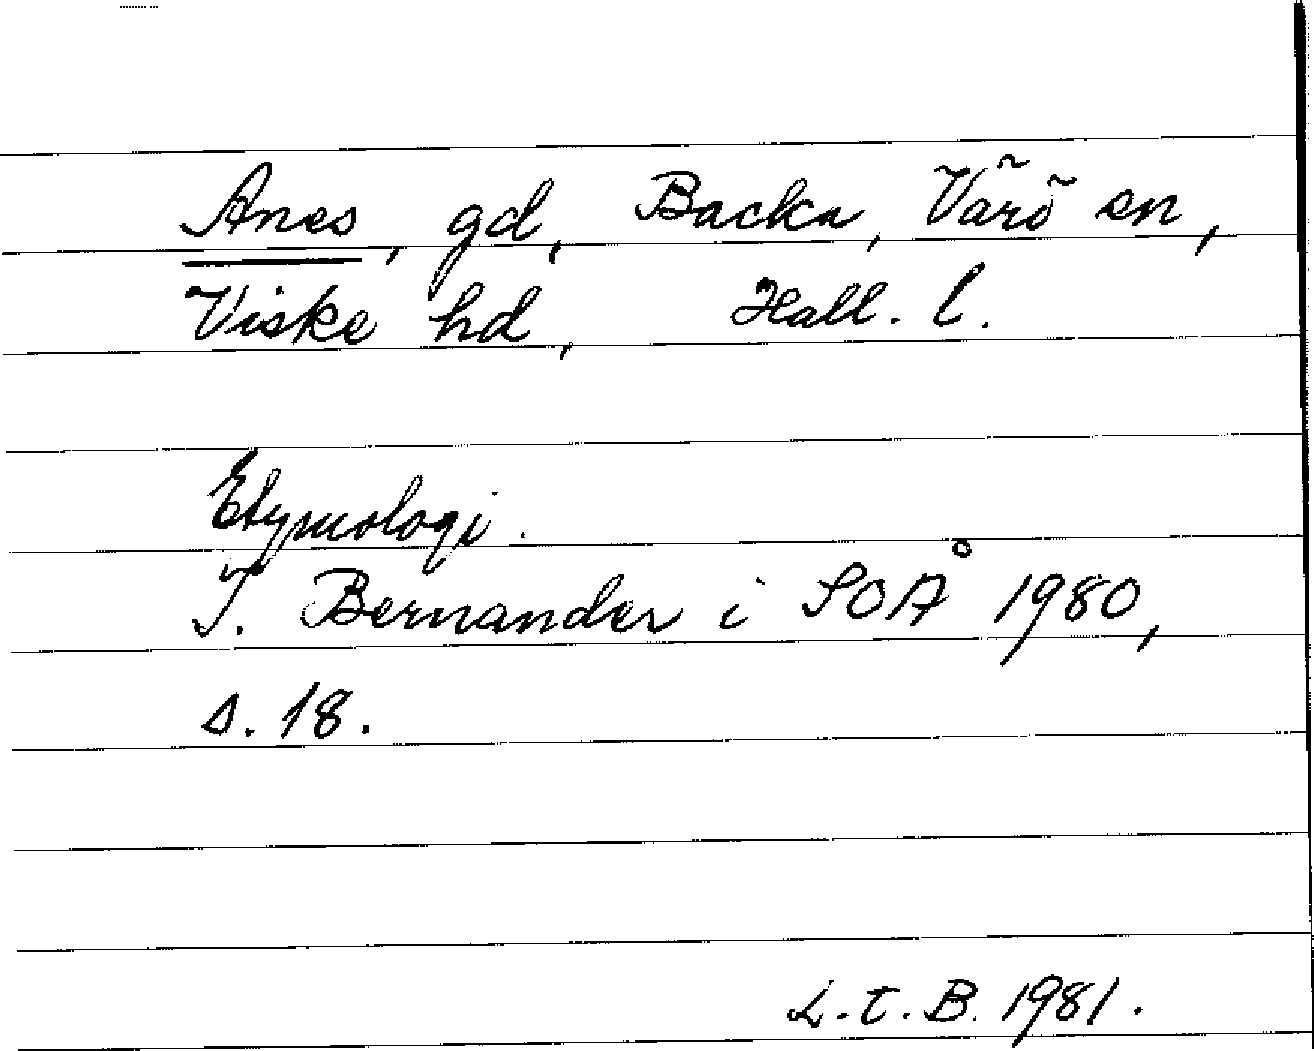 Anes, gd, Backa, Värö sn,
Viske hd, Hall. l.
Etymologi.
I. Bernander i SOÅ 1980,
s. 18.
L.t.B. 1981.